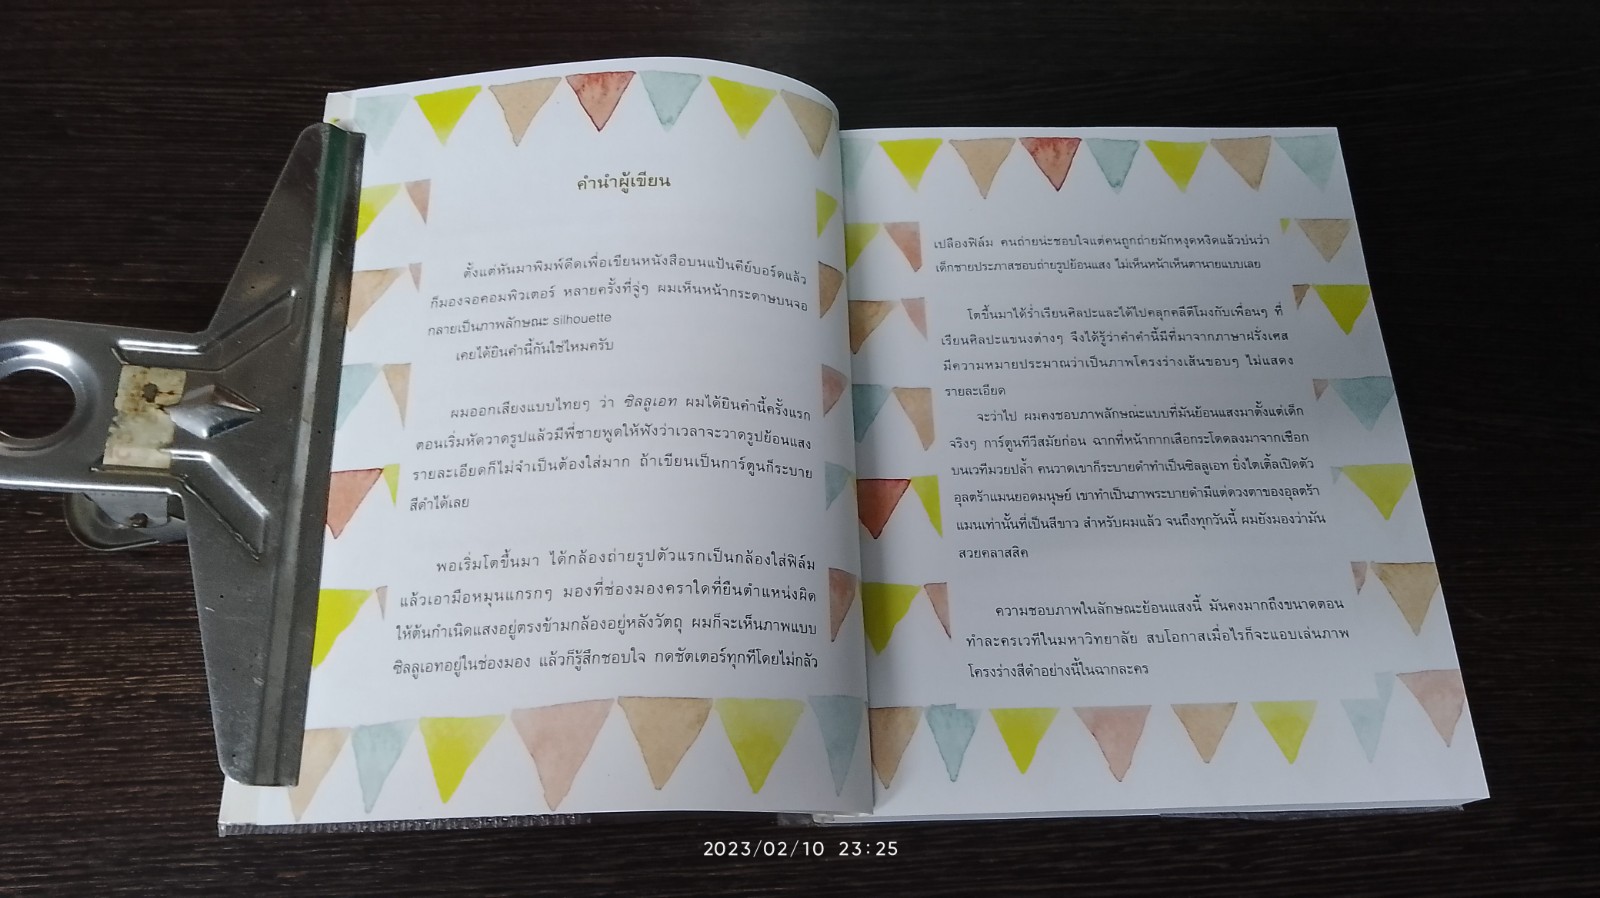 คำนำผู้เขียน
ตั้งแต่หันมาพิมพ์ดีดเพื่อเขียนหนังสือบนแป้นคีย์บอร์ดแล้ว
ก็มองจอคอมพิวเตอร์ หลายครั้งที่จู่ๆ ผมเห็นหน้ากระดาษบนจอ
กลายเป็นภาพลักษณะ silhouette
เคยได้ยินคำนี้กันใช่ไหมครับ
ผมออกเสียงแบบไทยๆ ว่า ซิลลูเอท ผมได้ยินคำนี้ครั้งแรก
ตอนเริ่มหัดวาดรูปแล้วมีพี่ชายพูดให้ฟังว่าเวลาจะวาดรูปย้อนแสง
รายละเอียดก็ไม่จำเป็นต้องใส่มาก ถ้าเขียนเป็นการ์ตูนก็ระบาย
สีดำได้เลย
พอเริ่มโตขึ้นมา ได้กล้องถ่ายรูปตัวแรกเป็นกล้องใส่ฟิล์ม
แล้วเอามือหมุนแกรกๆ มองที่ช่องมองคราใดที่ยืนตำแหน่งผิด
ให้ต้นกำเนิดแสงอยู่ตรงข้ามกล้องอยู่หลังวัตถุ ผมก็จะเห็นภาพแบบ
ซิลลูเอทอยู่ในช่องมอง แล้วก็รู้สึกชอบใจ กดชัตเตอร์ทุกทีโดยไม่กลัว
เปลืองฟิล์ม คนถ่ายน่ะชอบใจแต่คนถูกถ่ายมักหงุดหงิดแล้วบ่นว่า
เด็กชายประภาสชอบถ่ายรูปย้อนแสง ไม่เห็นหน้าเห็นตานายแบบเลย
โตขึ้นมาได้ร่ำเรียนศิลปะและได้ไปคลุกคลีตีโมงกับเพื่อนๆ ที่
เรียนศิลปะแขนงต่างๆ จึงได้รู้ว่าคำคำนี้มีที่มาจากภาษาฝรั่งเศส
มีความหมายประมาณว่าเป็นภาพโครงร่างเส้นขอบๆ ไม่แสดง
รายละเอียด
จะว่าไป ผมคงชอบภาพลักษณะแบบที่มันย้อนแสงมาตั้งแต่เด็ก
จริงๆ การ์ตูนทีวีสมัยก่อน ฉากที่หน้ากากเสือกระโดดลงมาจากเชือก
บนเวทีมวยปล้ำ คนวาดเขาก็ระบายดำทำเป็นซิลลูเอท ยิ่งไตเติ้ลเปิดตัว
อุลตร้าแมนยอดมนุษย์ เขาทำเป็นภาพระบายดำมีแต่ดวงตาของอุลตร้า
แมนเท่านั้นที่เป็นสีขาว สำหรับผมแล้ว จนถึงทุกวันนี้ ผมยังมองว่ามัน
สวยคลาสสิค
ความชอบภาพในลักษณะย้อนแสงนี้ มันคงมากถึงขนาดตอน
ทำละครเวทีในมหาวิทยาลัย สบโอกาสเมื่อไรก็จะแอบเล่นภาพ
โครงร่างสีดำอย่างนี้ในฉากละคร
2023/02/10 23:25